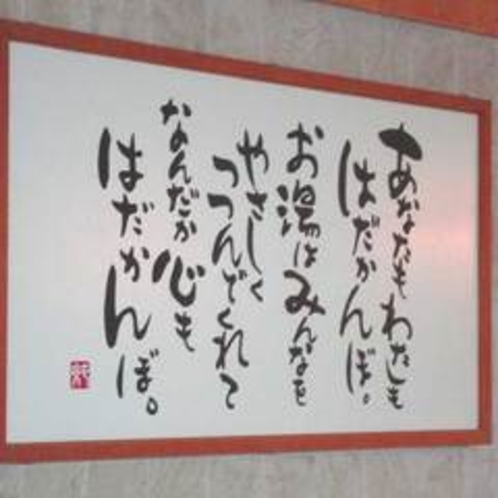 あなたもわたしも
はだかんぼ。
お湯はみんなを
やさしく
つつんでくれて
なんだか心も
はだかんぼ。